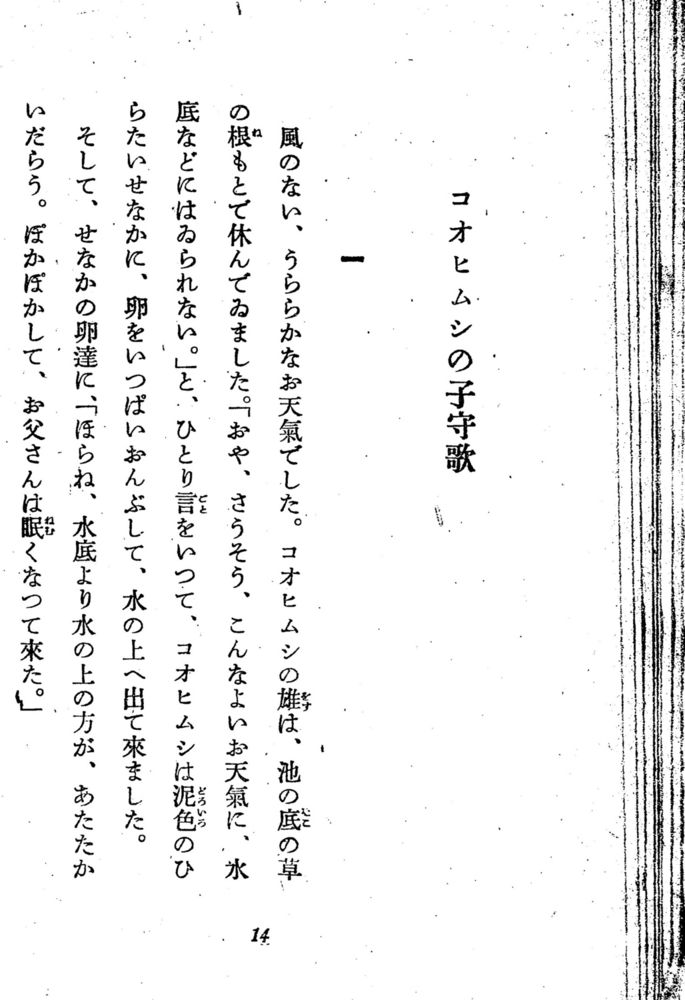 コオヒムシの子守歌
一
風のない、うららかなお天氣でした。コオヒムシの雄は、池の底の草
の根もとで休んでゐました。「おや、さうそう、こんなよいお天氣に、水
底などにはゐられない。」と、ひとり言をいつて、コオヒムシは泥色のひ
らたいせなかに、卵をいつぱいおんぶして、水の上へ出て來ました。
そして、せなかの卵達に、「ほらね、水底より水の上の方が、あたたか
いだらう。ぽかぽかして、お父さんは眠くなつて來た。」
14